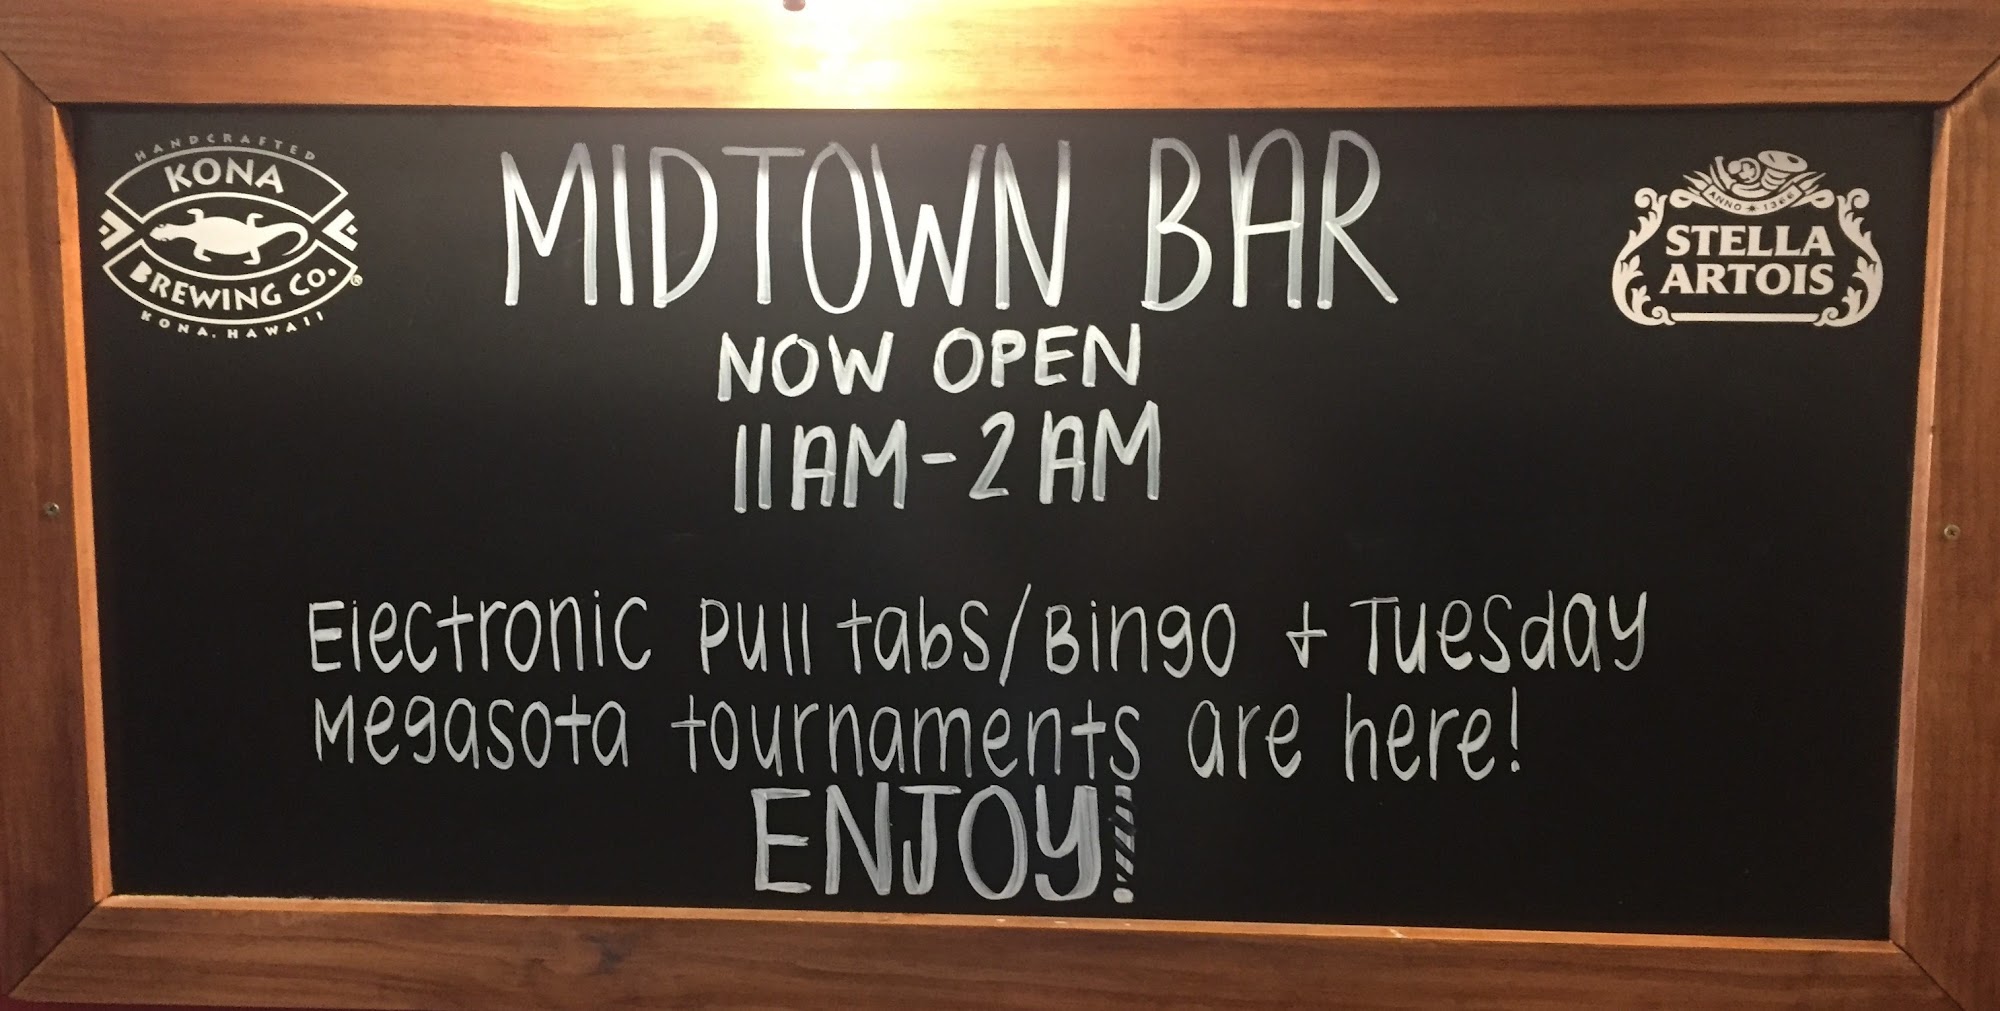 HANDCRAFTED
KONA
BREWING CO.®
KONA, HAWAII
MIDTOWN BAR
NOW OPEN
11AM-2AM
ANNO * 1366
STELLA
ARTOIS
Electronic Pull tabs/Bingo + Tuesday
Megasota tournaments are here!
ENJOY!